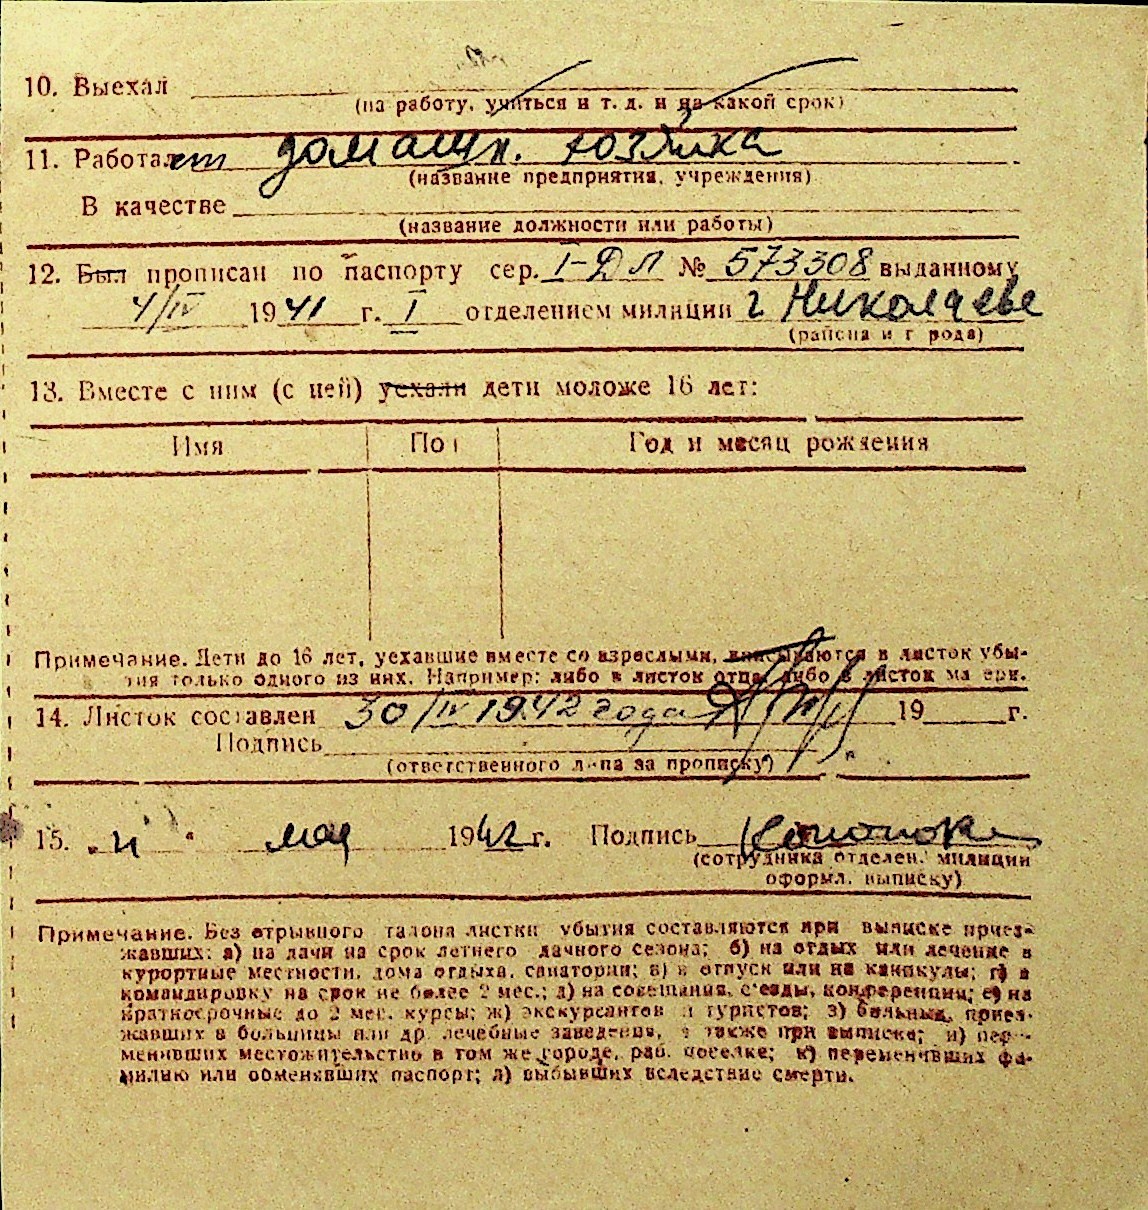 10. Выехал
(на работу, учиться и т. д. и на какой срок)
11. Работает домашн. хозяйка
(название предприятия, учреждения)
В качестве
(название должности или работы)
12. Был прописан по паспорту сер. I-ДЛ № 573308 выданному
4/IV 1941 г. I отделением милиции г. Николаеве
(района и г рода)
13. Вместе с ним (с ней) уехали дети моложе 16 лет:
Имя Пол Год и месяц рождения
Примечание. Дети до 16 лет, уехавшие вместе со взрослыми, вписываются в листок убы-
тия только одного из них. Например: либо в листок отца, либо в листок ма ери.
14. Листок составлен 30/IV 1942 года 19 г.
Подпись
(ответственного лица за прописку)
15. мая 1942 г. Подпись
(сотрудника отделен. милиции
оформл. выписку)
Примечание. Без отрывного талона листки убытия составляются при выписке приез-
жавших: а) на дачи на срок летнего дачного сезона; б) на отдых или лечение в
курортные местности, дома отдыха, санатории; в) в отпуск или на каникулы; г) в
командировку на срок не более 2 мес.; д) на совещания, с'езды, конференции; е) на
краткосрочные до 2 мес. курсы; ж) экскурсантов и туристов; з) больных, приез-
жавших в больницы или др. лечебные заведения, а также при выписке; и) пере-
менивших местожительство в том же городе, раб. поселке; к) переменивших фа-
милию или обменявших паспорт; л) выбывших вследствие смерти.